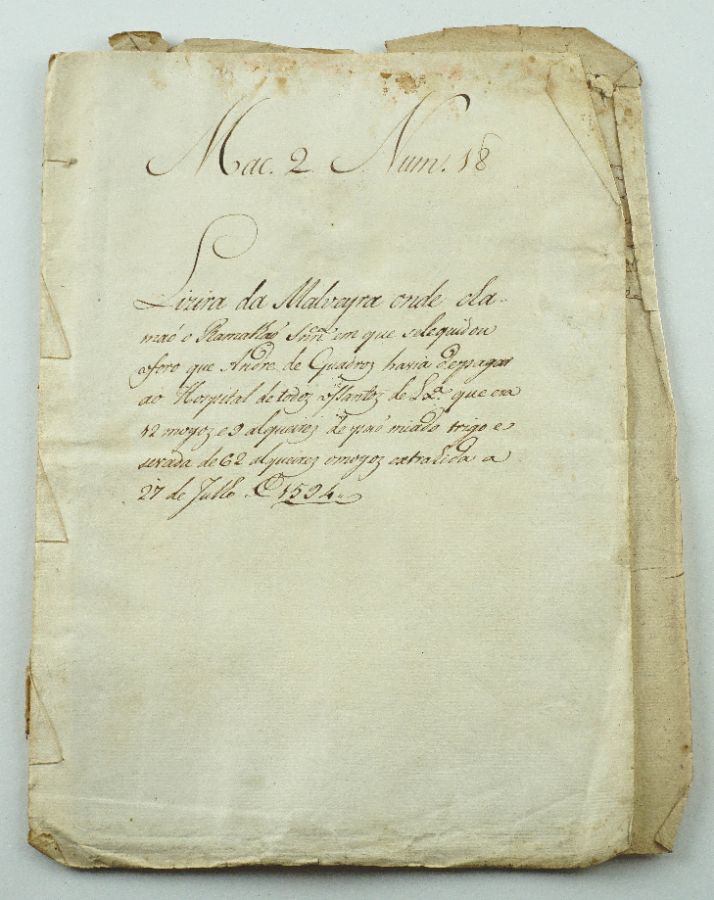 Mac. 2 Num. 18
Lizira da Malveyra onde cla-
maõ o Ramalhaõ Snn.ca em que selequidou
oforo que Andre de Quadros havia depagar
ao Hospital de todoz osSantoz de Lx.a que era
12 moyoz e 9 alqueirez de paõ miado trigo e
sevada de 62 alqueirez omoyoz extrahida a
27 de Julho D 1594